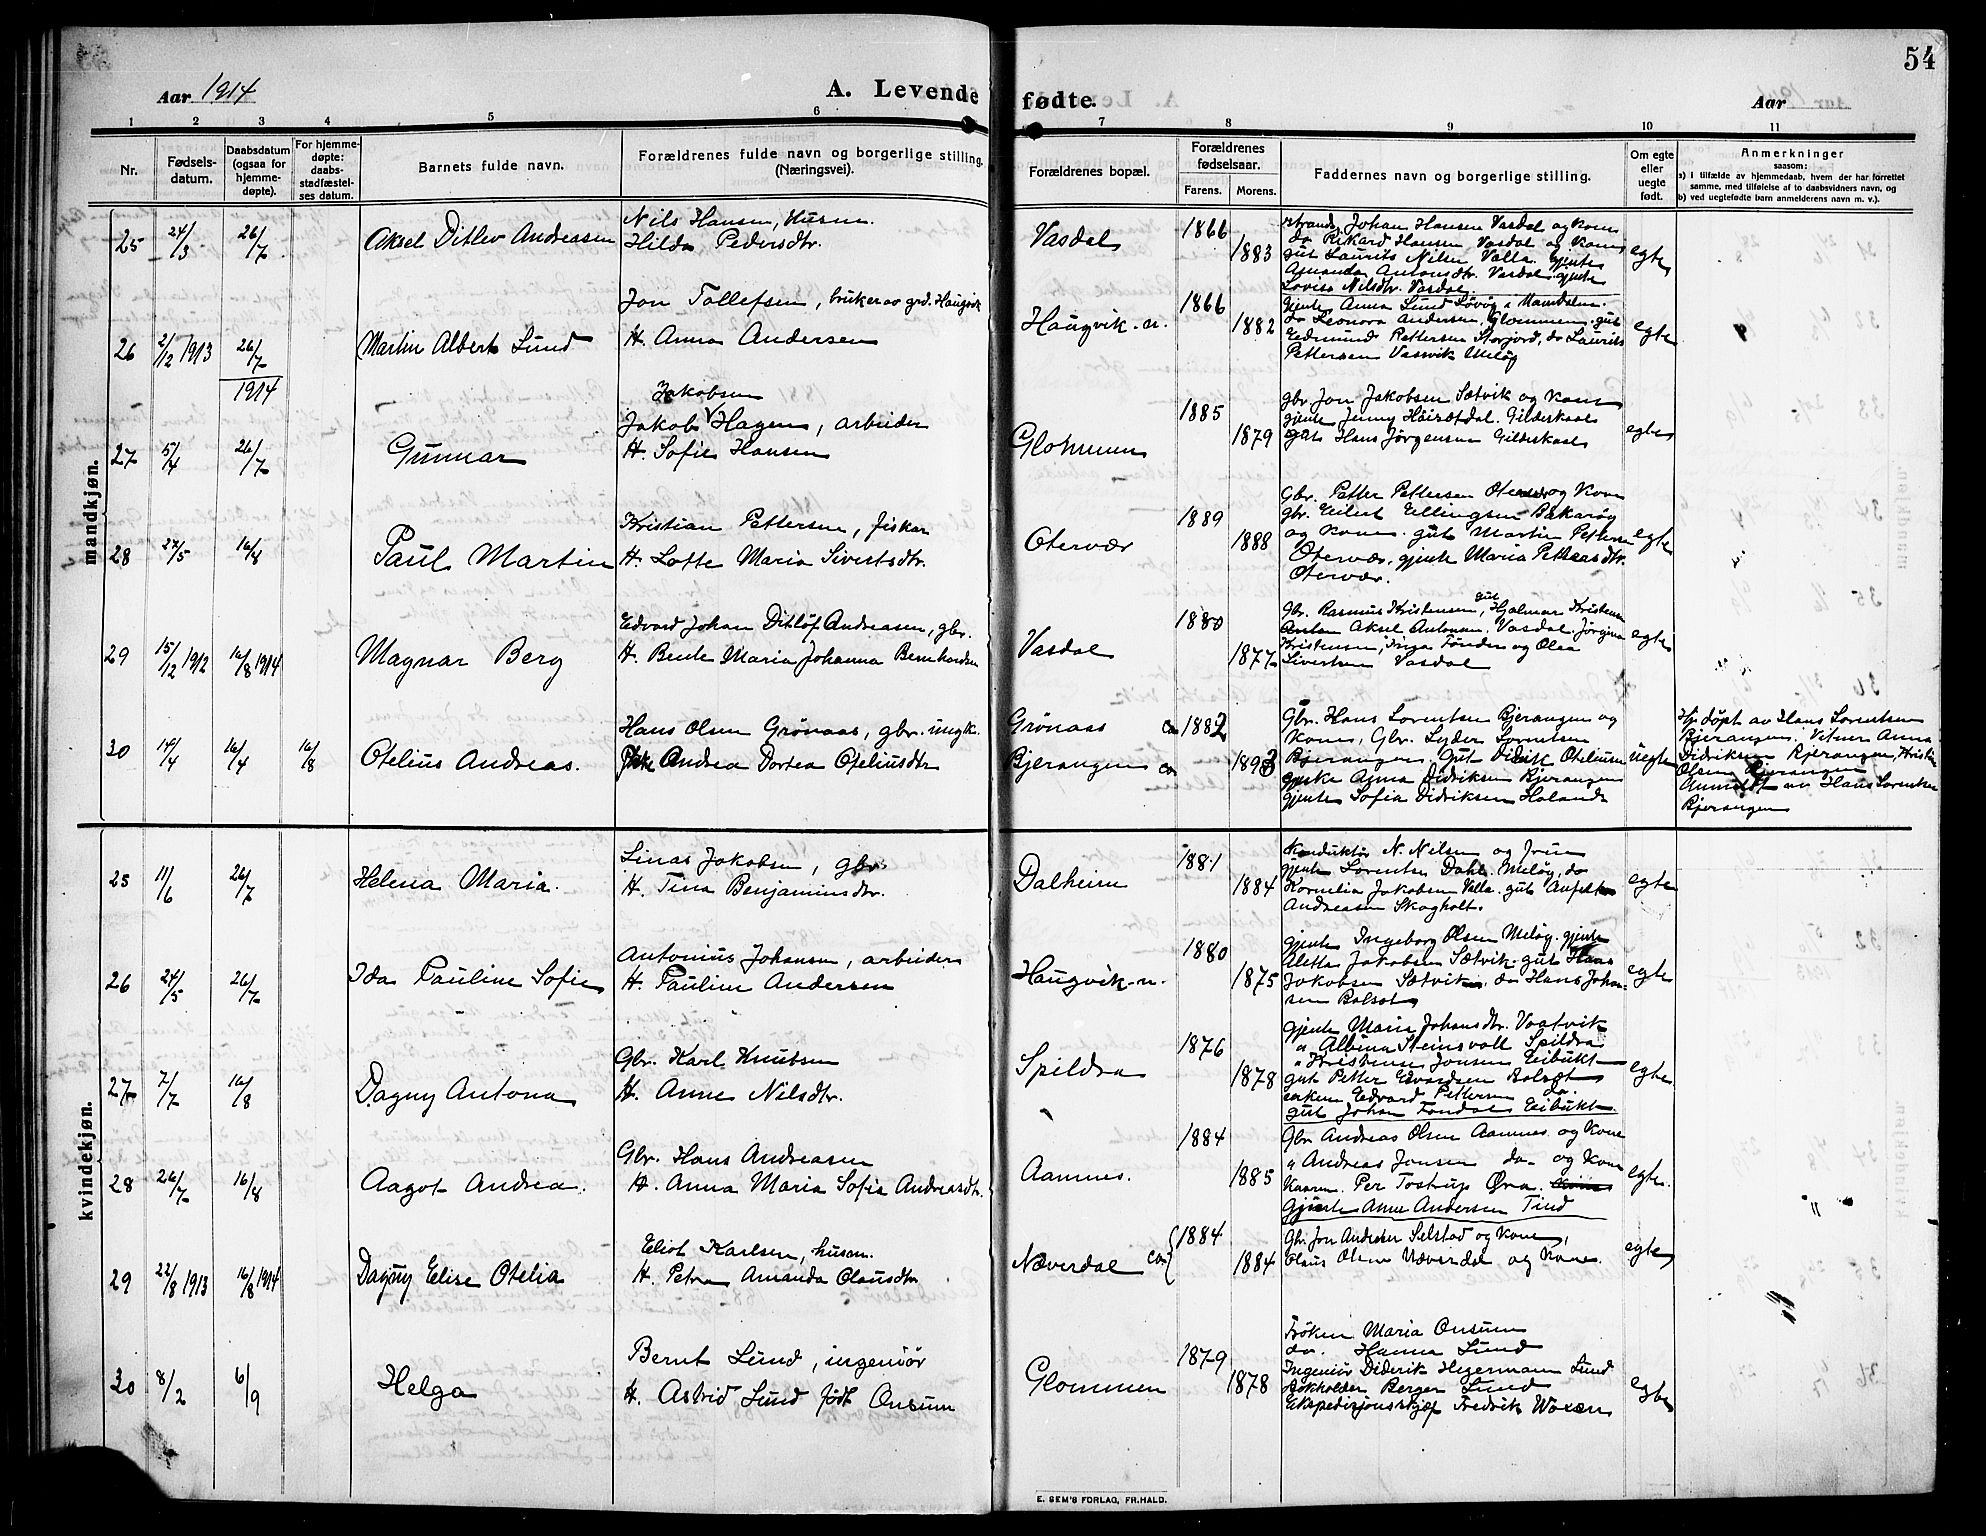 54
Aar 1914
A. Levende fødte.
Aar
1 2 3 4 5 6 7 8 9 10 11
Nr.
Fødsels-
datum.
Daabsdatum
(ogsaa for
hjemme-
døpte).
For hjemme-
døpte:
daabs-
stadfæstel-
ses datum.
Barnets fulde navn.
Forældrenes fulde navn og borgerlige stilling.
(Næringsvei).
Forældrenes bopæl.
Forældrenes
fødselsaar.
Farens. Morens.
Faddernes navn og borgerlige stilling.
Om egte
eller
uegte
født.
Anmerkninger
saasom:
a) i tilfælde av hjemmedaab, hvem der har forrettet
samme, med tilføielse af to daabsvidners navn, og
b) ved uegtefødte barn anmelderens navn m. v.).
mandkjøn.
25 24/3 26/7 Aksel Ditlev Andreassen
Nils Hansen, Husm.
Hilda Pedersdtr.
Vasdal 1866 1883
Johan Hansen Vasdal og Kone
do Rikard Hansen Vasdal og Kone,
gut Laurits Nilsen Valla. gjente
Amanda Antonsdtr. Vasdal gjente
Lovise Nilsdtr. Vasdal.
egte
26 2/12 1913 26/7 1914 Martin Albert Lund
Jon Tollefsen, bruker av grd. Haugvik
H. Anna Andersen
Haugvik-n. 1866 1882
gjente Anna Lund Løvøy i Namdalen.
do Leonora Andersen, Glommen. gut
Edmund Pettersen Storjord, do Laurits
Pettersen Vassvik Meløy
egte
27 5/4 26/7 Gunnar
Jakobsen
Jakob Hagen, arbeider
H. Sofie Hansen
Glommen 1885 1879
gbr Jon Jakobsen Sætvik og Kone
gjente Jenny Gilderskaal
gut Hans Jörgensen Gilderskaal
egte
28 27/5 16/8 Paul Martin
Kristian Pettersen, fisker
H. Lotte Maria Sivertsdtr.
Otervær 1889 1888
Gbr. Petter Pettersen Otervær og Kone
gbr. Eilert Ellingsen
og Kone. gut Martin Pettersen
Otervær, gjente Maria Pettersdtr.
Otervær.
egte
29 15/12 1912 16/8 1914 Magnar Berg
Edvard Johan Ditløf Andreasen, gbr.
H. Bende Maria Johanna Bernhardsen
Vasdal 1880 1877
Gbr. Rasmus Kristensen, gut Hjalmar Kristensen
Aksel Antonsen. Vasdal Jörgine
Kristensen, Inga Tönder og Olea
Sivertsen Vasdal
egte
30 14/4 16/4 16/8 Otelius Andreas.
Hans Olsen Grönaas, gbr. ungk.
Pike Andrea Dortea Oteliusdtr
Grönaas ca 1882
Bjerangen ca 1893
Gbr. Hans Lorentsen Bjerangen og
Kone, Gbr. Lyder Lorentsen
Bjerangen, Gut Didrik Oteliussen
gjente Anna Didriksen Bjerangen
gjente Sofia Didriksen Holand
uegte
Hj. døpt av Hans Lorentsen
Bjerangen. Vitner Anna
Didriksen Bjerangen, Kristine
Olsen Bjerangen
Anmeldt av Hans Lorentsen
Bjerangen
kvindekjøn.
25 11/6 26/7 Helena Maria.
Linas Jakobsen, gbr
H. Tina Benjaminsdtr.
Dalheim 1881 1884
Konduktör N. Nilsen og fru
gjente Lorentse Dahl. Meløy, do
Kornelia Jakobsen Valla. gut
Andreasen Skogholt.
egte
26 24/5 26/7 Ida Pauline Sofie
Antonius Johansen, arbeider
H. Pauline Andersen
Haugvik-n. 1880 1875
gjente Ingeborg Olsen Meløy. gjente
Aletta Jakobsen Sætvik. gut Hans
Jakobsen Sætvik, do Hans Johan-
sen Bolsöt
egte
27 7/7 16/8 Dagny Antona
Gbr. Karl Knutsen
H. Anne Nilsdtr.
Spildra 1876 1878
gjente Maria Johansdtr. Vaatvik
" Albina Steinsvoll Spildra
" Kristense Jonsen Eibukt
gut Petter Edvardsen Bolsöt
enkem Edvard Pettersen do.
gut Johan Tøndal Eibukt.
egte
28 26/7 16/8 Aagot Andrea.
Gbr. Hans Andreasen
H. Anna Maria Sofia Andreasdtr.
Aamnes. 1884 1885
Gbr Andreas Olsen Aamnes og Kone
" Andreas Jonsen do og Kone
Karen. Per Tostrup Øra.
Gjente Anne Andersen Tind
egte.
29 22/8 1913 16/8 1914 Dagny Elise Otelia
Eliot Karlsen, husm.
H. Petra Amanda Olausdtr
Næverdal ca 1884 1884
Gbr. Jon Andersen Selstad og Kone,
Olaus Olsen Næverdal og Kone.
egte
30 8/2 6/9 Helga
Bernt Lund, ingeniör
H. Astrid Lund født Onsum
Glommen 1879 1878
Fröken Maria Onsum
do. Hanna Lund
Ingeniör Diderik Hegermann Lund
Bokholder Berger Lund
Ekspedisjonssjef Fredrik Waxen
egte
E. SEM'S FORLAG, FR.HALD.